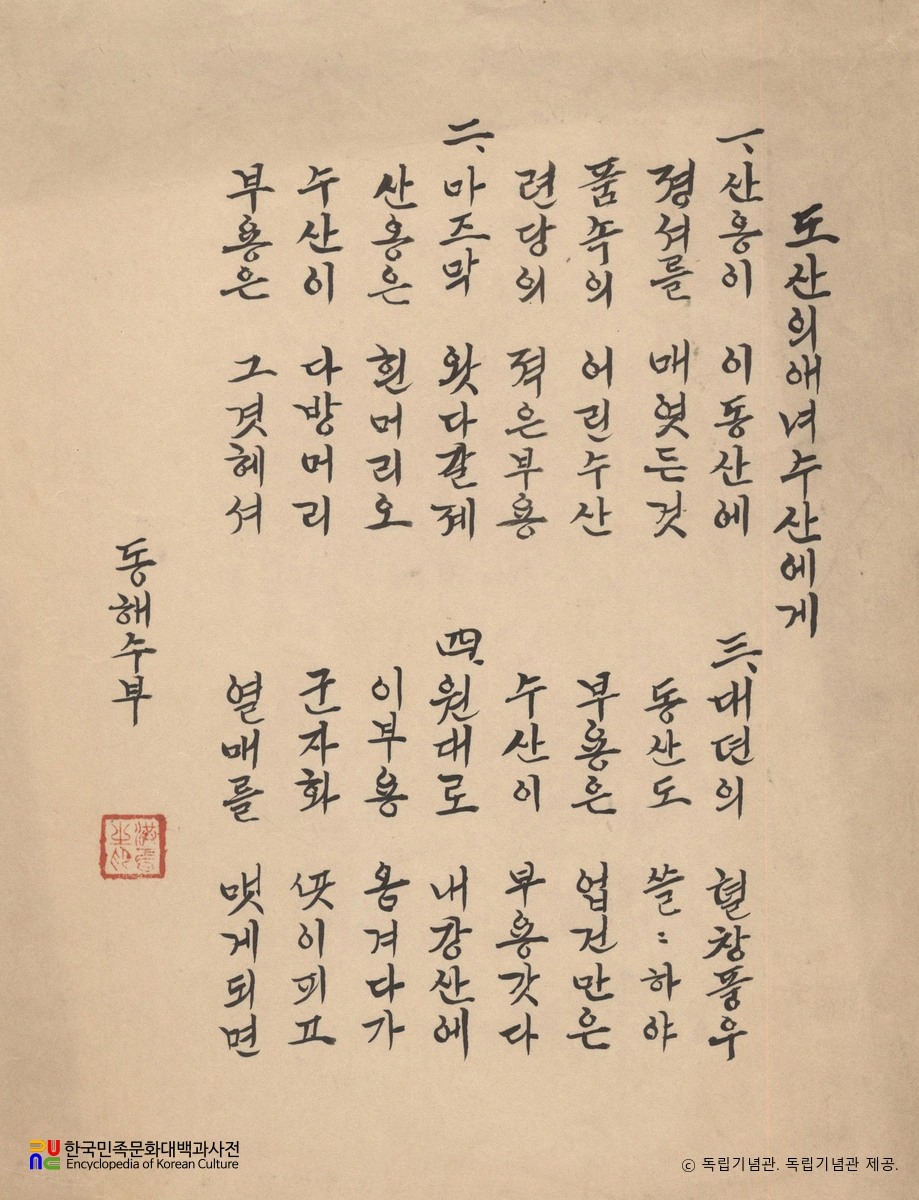 도산의애녀수산에게
一、산옹이 이동산에
졍셔를 매엿든것
품속의 어린수산
련당의 젹은부용
二、마즈막 왓다갈졔
산옹은 흰머리오
수산이 다방머리
부용은 그겻헤셔
三、대뎐의 혈창풍우
동산도 쓸〻하야
부용은 업건만은
수산이 부용갓다
四、원대로 내강산에
이부용 옴겨다가
군자화 ᄭᅩᆺ이피고
열매를 맷게되면
동해수부
한국민족문화대백과사전
Encyclopedia of Korean Culture
ⓒ 독립기념관. 독립기념관 제공.